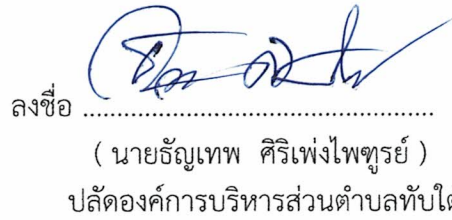 ลงชื่อ ................................................
( นายธัญเทพ ศิริเพ่งไพฑูรย์ )
ปลัดองค์การบริหารส่วนตำบลทับใต้